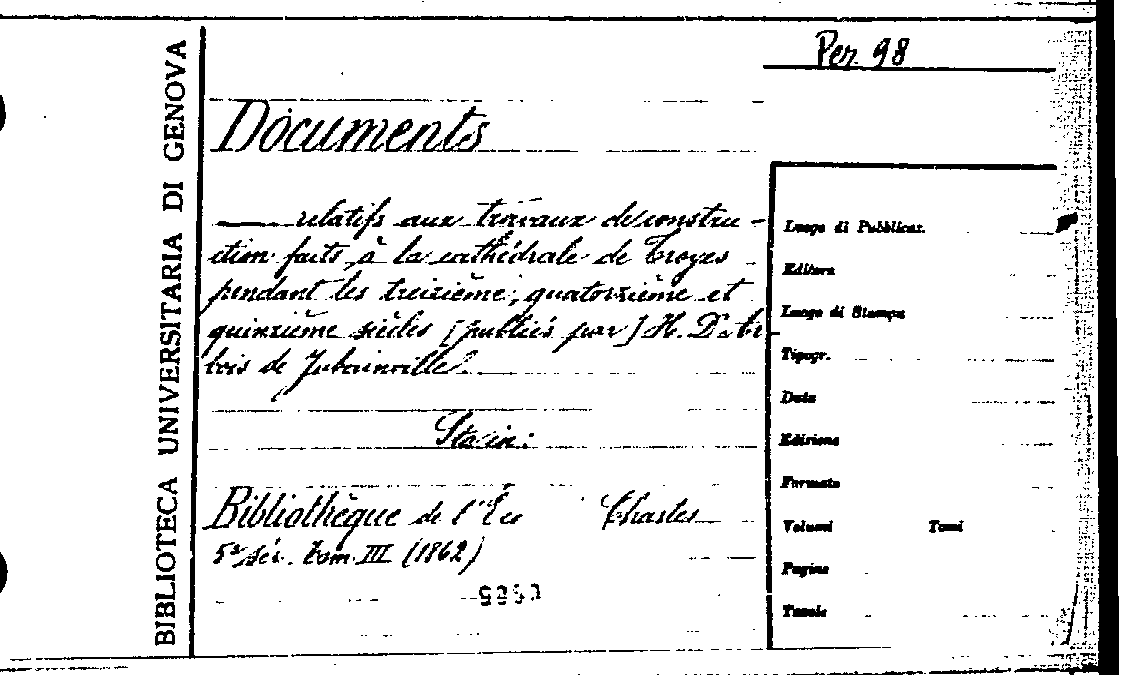 BIBLIOTECA UNIVERSITARIA DI GENOVA
Per. 98
Documents
—— relatifs aux travaux de constru-
ction faits à la cathédrale de Troyes
pendant les treizième, quatorzième et
quinzième siècles [publiés par] H. D'Ar-
bois de Jubainville.
Sta in:
Bibliothèque de l'Éc Chartes
5ª Sér. Tom. III (1862)
Luogo di Pubblicaz.
Editore
Luogo di Stampa
Tipogr.
Data
Edizione
Formato
Volumi Tomi
Pagine
Tavole